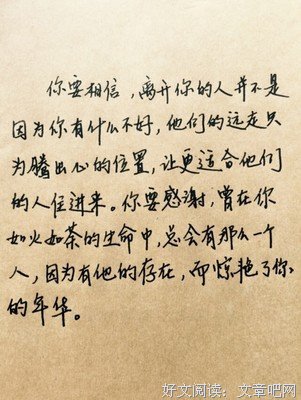 你要相信，离开你的人并不是
因为你有什么不好，他们的远走只
为腾出心的位置，让更适合他们
的人住进来。你要感谢，曾在你
如火如荼的生命中，总会有那么一个
人，因为有他的存在，而惊艳了你
的年华。
好文阅读：文章吧网